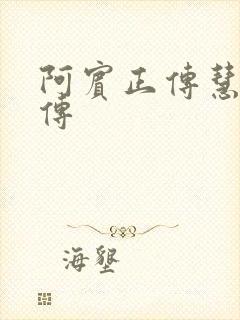 阿賓正傳慧
傳
海墾